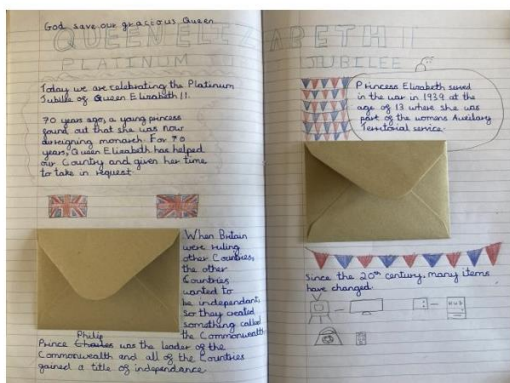 God save our gracious Queen
QUEEN ELIZABETH II
PLATINUM JUBILEE
Today we are celebrating the Platinum
Jubilee of Queen Elizabeth II.
70 years ago, a young princess
found out that she was now
a reigning monarch For 70
years, Queen Elizabeth has helped
our Country and given her time
to take in request.
When Britain
were ruling
other Countries,
the other
Countries
wanted to
be independant,
so they created
something called
the Commonwealth
Philip
Prince Charles was the leader of the
Commonwealth and all of the Countries
gained a title of independance.
Princess Elizabeth served
in the war in 1939 at the
age of 13 where she was
part of the womens Auxilary
Territorial service.
Since the 20th century, many items
have changed